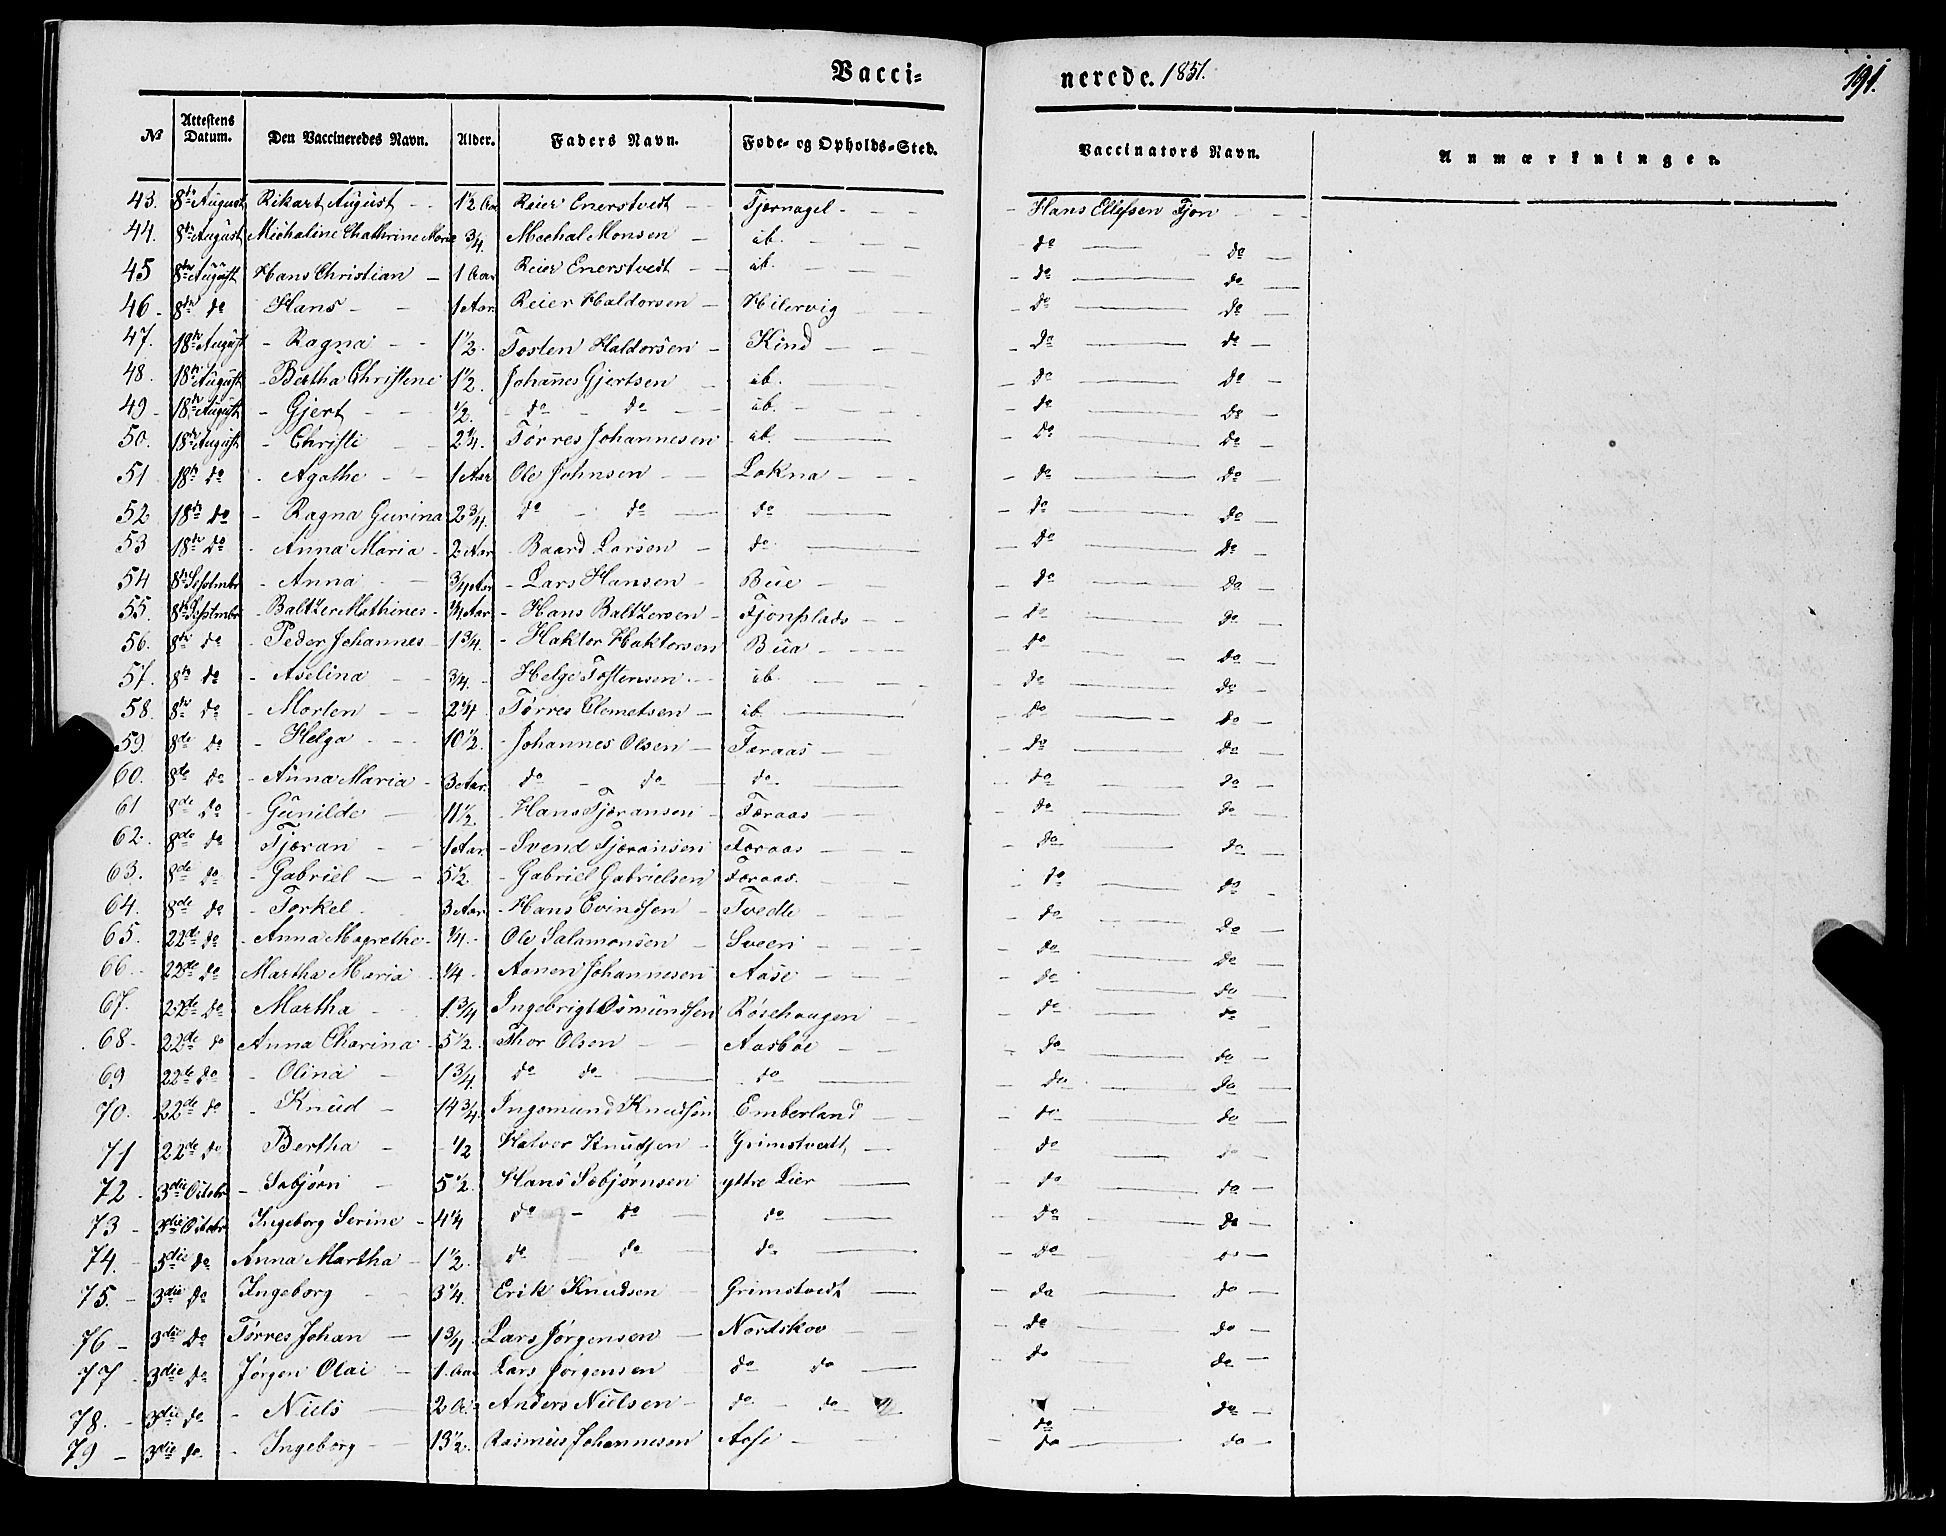 Vacci= nerede. 1851. 191.
№ Attestens Datum. Den Vaccineredes Navn. Alder. Faders Navn. Føde- og Opholds-Sted. Vaccinators Navn. Anmærkninger.
43. 8de August Rikart August - - 1½ Aar Reier Enerstvedt - - Tjernagel - - - - Hans Ellefsen Fjon - - -
44. 8de August Michaline Chathrine Marie ¾. Mechal Monsen - ib. - - - do - do -
45 8de August Hans Christian - 1 Aar Reier Enerstvedt - - ib. - - - do - do -
46 - 8de do Hans - - 1 Aar. Reier Haldorsen - Hilervig - - - do - do -
47. 18de August - Ragna - - 1½. Tosten Haldorsen - Kind - - - - do - do -
48. 18de August - Bertha Christene 1½. Johannes Gjertsen - ib. - - - do - do -
49 - 18de August - Gjert - - ½. - do - do - - ib. - - - do - do -
50. 18de August - Christi - - 2¼. Tørres Johannesen - ib. - - do - do -
51 18de do - Agathe - - 1 Aar Ole Johnsen - - Lokna - - - - do - do -
52 18de do - Ragna Gurina 2¾. do - do - do - - do - do -
53 18de do - Anna Maria - 2 Aar - Baard Larsen - do - - do - do -
54 8de Septmbr - Anna - - ¾ Aar - Lars Hansen - Bue - - do - do -
55. 8de Septmbr - Baltzer Mathines - ¼ Aar - Hans Baltzersen - Fjonsplads - - - do - do -
56. 8de do - Peder Johannes - 1¾. - Haktor Haktorsen Bua - - - - do - do -
57. 8de do - Aselina - - ¾. - Helge Tostensen - ib. - - - do - do -
58. 8de do - Morten - - 2¼. Tørres Clemetsen - ib - - do - do -
59. 8de do - Helga - - 10½. - Johannes Olsen - Færaas - - do - do -
60. 8de do - Anna Maria - 3 Aar. do - do - do - - do - do -
61 8de do - Gunilde - 11½. - Hans Tjøransen - Færaas - - - do - do -
62. 8de do - Tjøran - - 1 Aar. - Svend Tjøransen Færaas - - - do - do -
63. 8de do - Gabriel - - 5½. - Gabriel Gabrielsen Færaas. - - - do - do -
64. 8de do - Torkel - 3 Aar - Hans Evindsen - Tvedte - - - do - do -
65. 22de do - Anna Magrethe - ¾. - Ole Salamonsen - Sveen - - - - do - do -
66. - 22de do Martha Maria ¼ - Aanen Johannesen Aase - - - do - do -
67. 22de do Martha - 1¾ Ingebrigt Osmundsen Røsehaugen - - do - do -
68 - 22de do Anna Charina - 5½. Thor Olsen - - Aasbøe - - - do - do -
69 22de do - Olina - 1¾. do do - do - - do - do -
70. 22de do - Knud - 14¾ Ingemund Knudsen Emberland - - do - do -
71 22de do Bertha - - ½ Halvor Knudsen - Grimstvedt - - do - do -
72 - 3die Octobr - Sebjørn - 5½. Hans Sebjørnsen yttre Lier - - do - do -
73 - 3die Octobr - Ingeborg Serine - 4¼ do - do do - - do - do -
74. - 3die do Anna Martha - 1½. do - do do - - do - do -
75. - 3die do Ingeborg - 3¼. Erik Knudsen - Grimstvedt - - do - do -
76 - 3die do Tørres Johan - 1¾. Lars Jørgensen - Nordskov - - - do - do -
77 - 3die do Jørgen Olai - 1. Aar Lars Jørgensen do do - - do - do -
78. - 3die do - Niels - 2 A. Anders Nielsen - do - do - do - do -
79 - 3die do - Ingeborg - 13½. Rasmus Johannesen Aase - - - do - do -